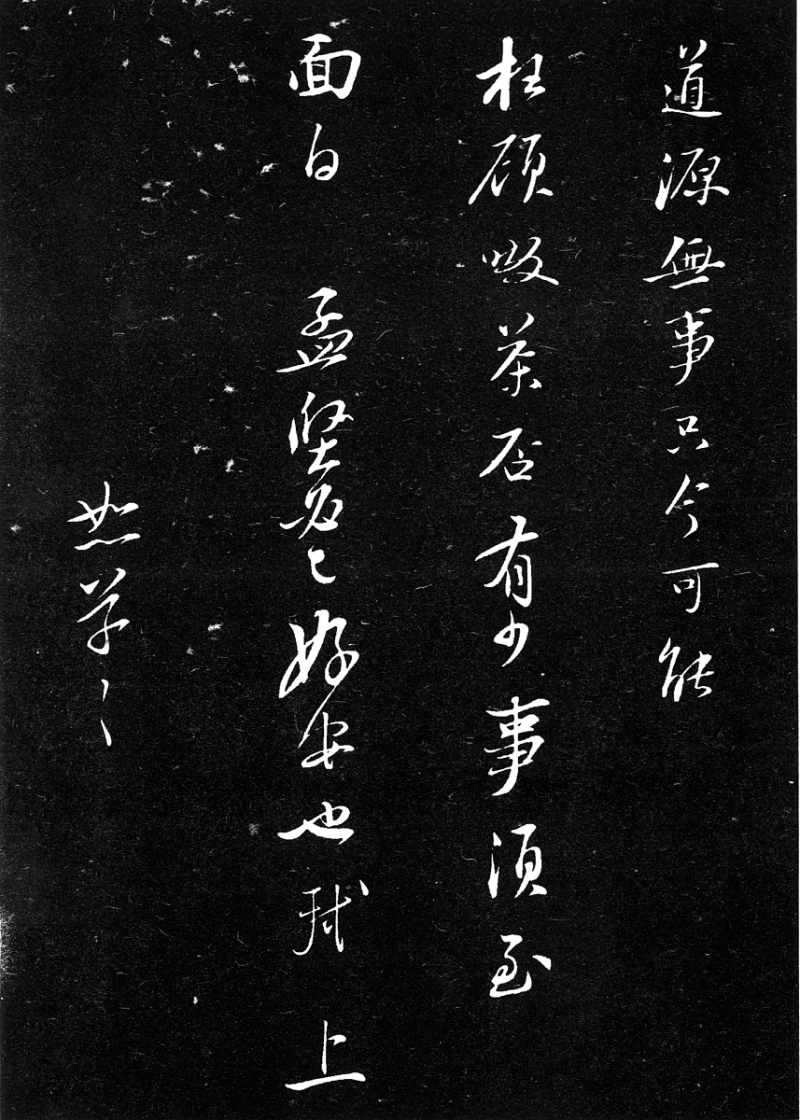 道源無事只今可能
枉顧啜茶否有少事須至
面白 孟堅必已好安也軾上
恕草〻